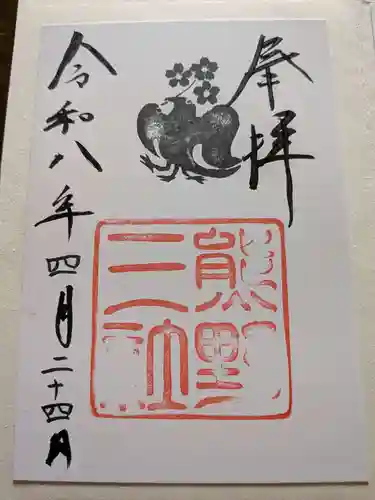 奉拝
熊野
三社
令和八年四月二十四日